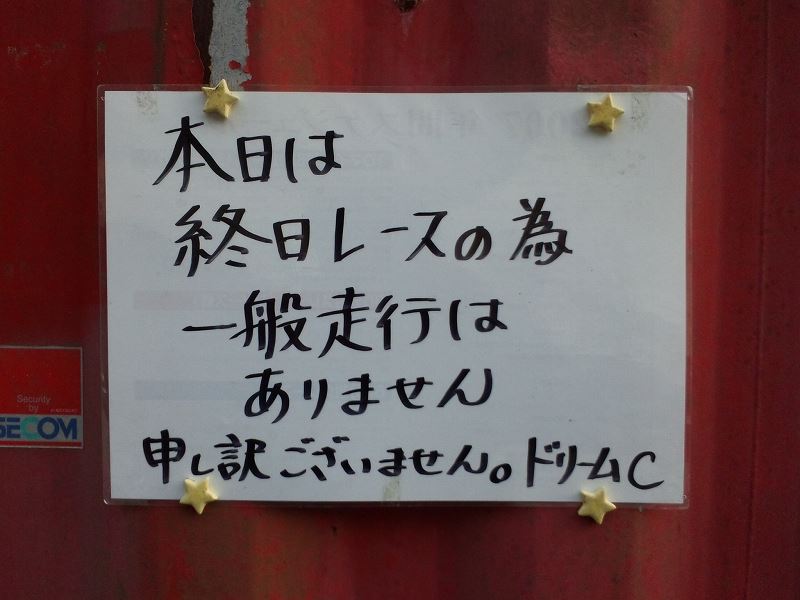 本日は
終日レースの為
一般走行は
ありません
申し訳ございません。ドリームC
Security
by
SECOM